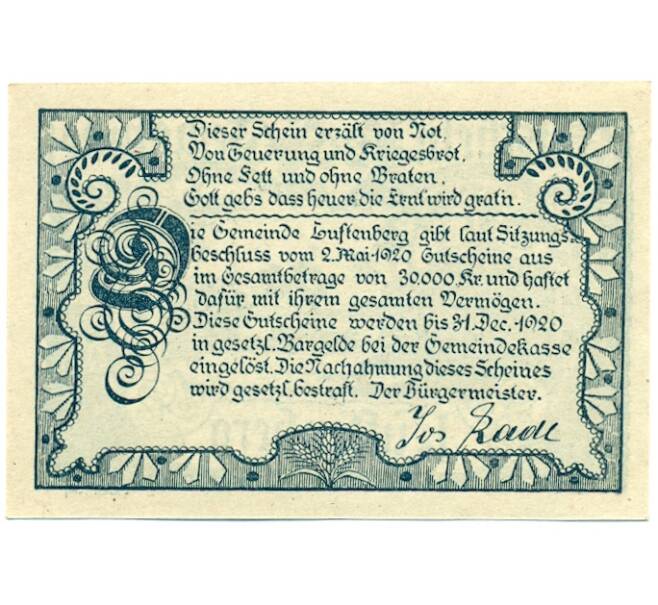 Dieser Schein erzält von Not,
Von Teuerung und Kriegesbrot,
Ohne Fett und ohne Braten,
Gott gebs dass heuer die Ernt wird gratn.
Die Gemeinde Luftenberg gibt laut Sitzungs-
beschluss vom 2. Mai 1920 Gutscheine aus
im Gesamtbetrage von 30.000 Kr. und haftet
dafür mit ihrem gesamten Vermögen.
Diese Gutscheine werden bis 31. Dec. 1920
in gesetzl. Bargelde bei der Gemeindekasse
eingelöst. Die Nachahmung dieses Scheines
wird gesetzl. bestraft. Der Bürgermeister.
Jos